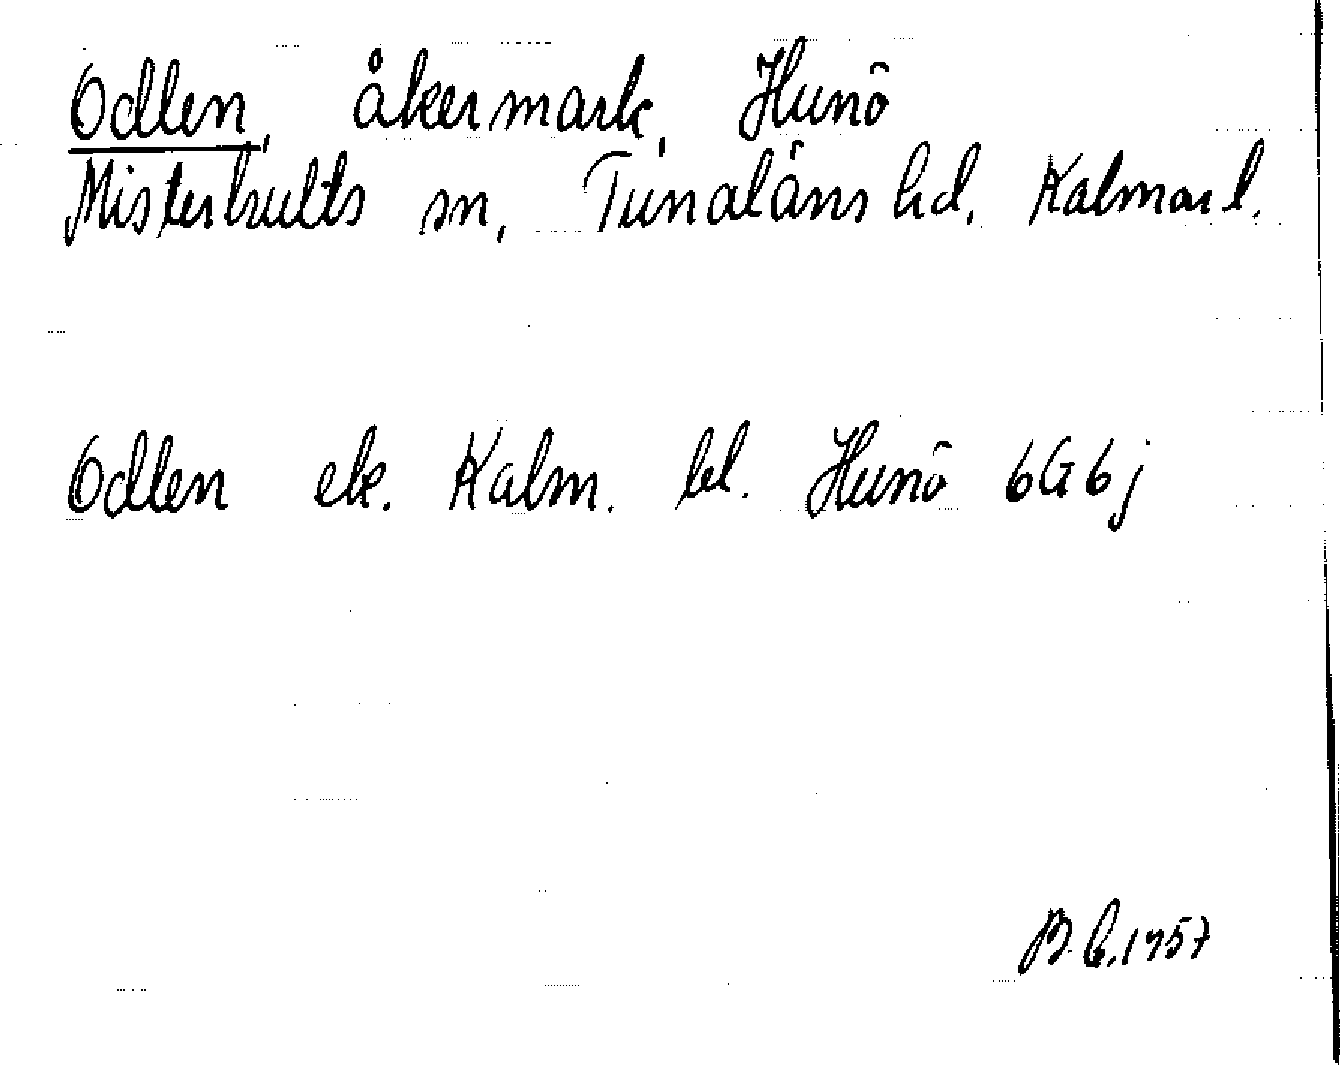 Odlen, åkermark, Hunö
Misterhults sn, Tunaläns hd. Kalmar l.
Odlen ek. Kalm. bl. Hunö 6G6j
B. C. 1957